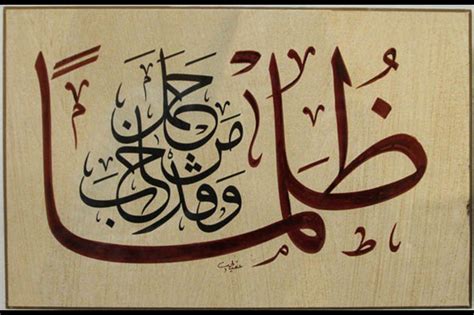 وقد خاب
من حمل
ظُلماً